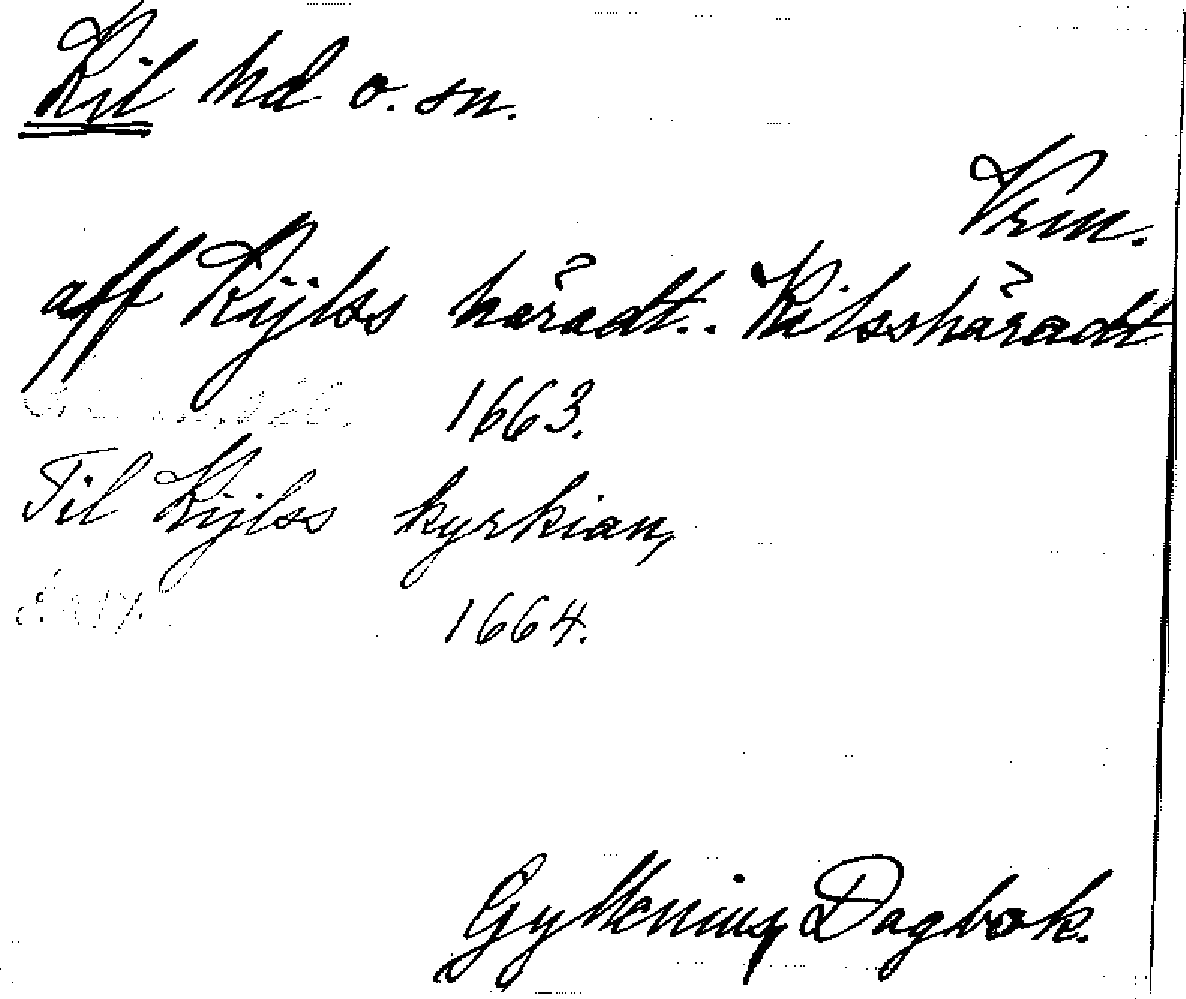 Kil hd o. sn.
Vrm.
aff Kijlss häradt.. Kilsshäradt
1663.
Til Kijlss kyrkian,
S. 217.
1664.
Gyllenius, Dagbok.